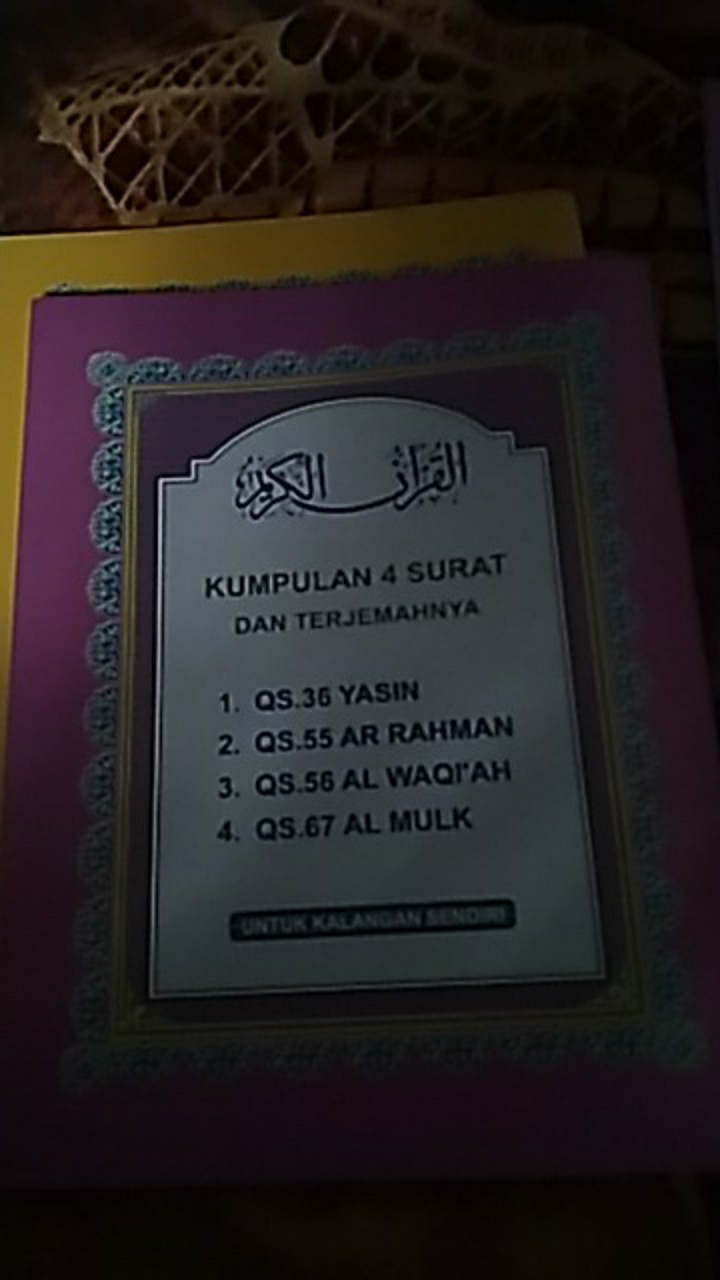 القرآن الكريم
KUMPULAN 4 SURAT
DAN TERJEMAHNYA
1. QS.36 YASIN
2. QS.55 AR RAHMAN
3. QS.56 AL WAQI'AH
4. QS.67 AL MULK
UNTUK KALANGAN SENDIRI